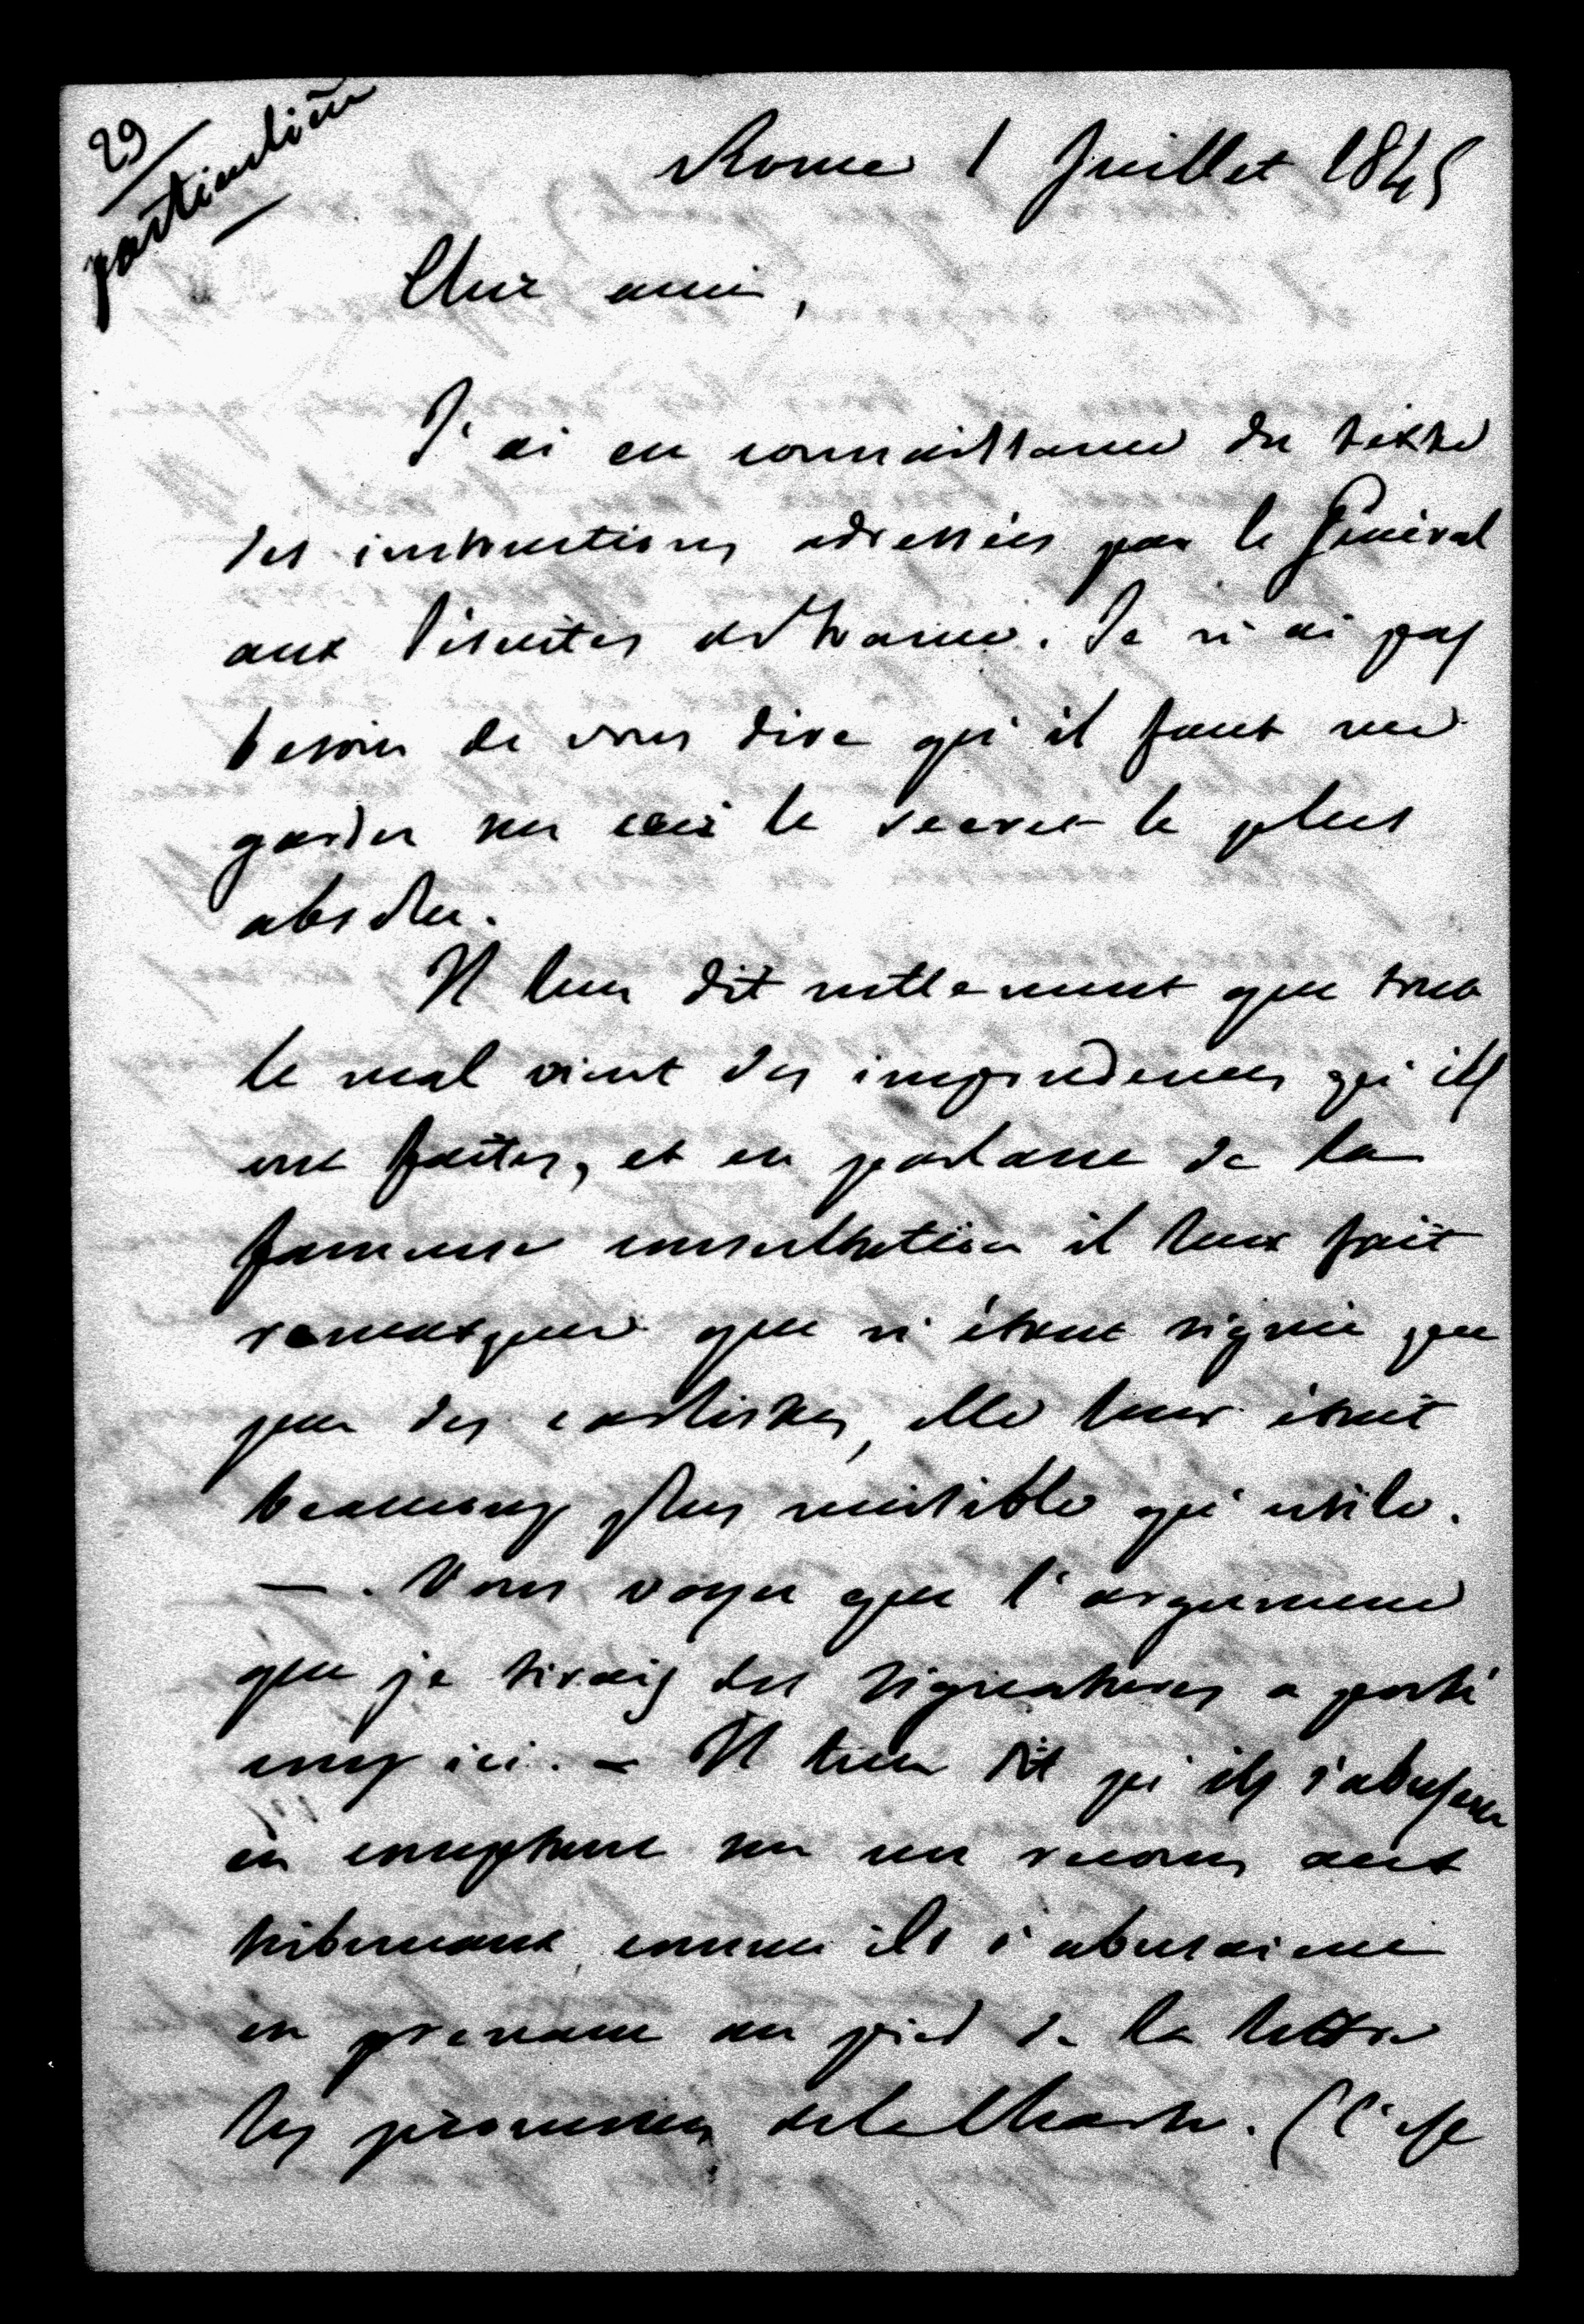 29
particulière
Rome 1 Juillet 1845
Cher ami,
J'ai eu connaissance du texte
des instructions adressées par le Général
aux Jésuites de France. Je n'ai pas
besoin de vous dire qu'il faut me
garder sur ceci le secret le plus
absolu.
Il leur dit nettement que tout
le mal vient des imprudences qu'ils
ont faites, et en parlant de la
fameuse consultation il leur fait
remarquer que n'étant signée que
par des carlistes, elle leur était
beaucoup plus nuisible qu'utile.
—. Vous voyez que l'argument
que je tirais des signatures a porté
coup ici. – Il leur dit qu'ils s'abusent
en comptant sur un recours aux
tribunaux comme ils s'abusaient
en prenant au pied de la lettre
les promesses de la Charte. (C'est